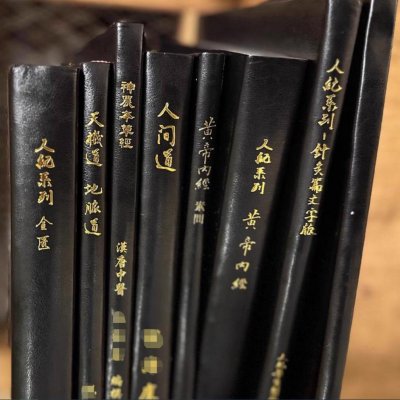 人紀系列 金匱
天機道 地脈道
神農本草經
漢唐中醫
编撰
人间道
黃帝内經 素問
人紀系列 黃帝内經
人紀系列-針灸篇文字版